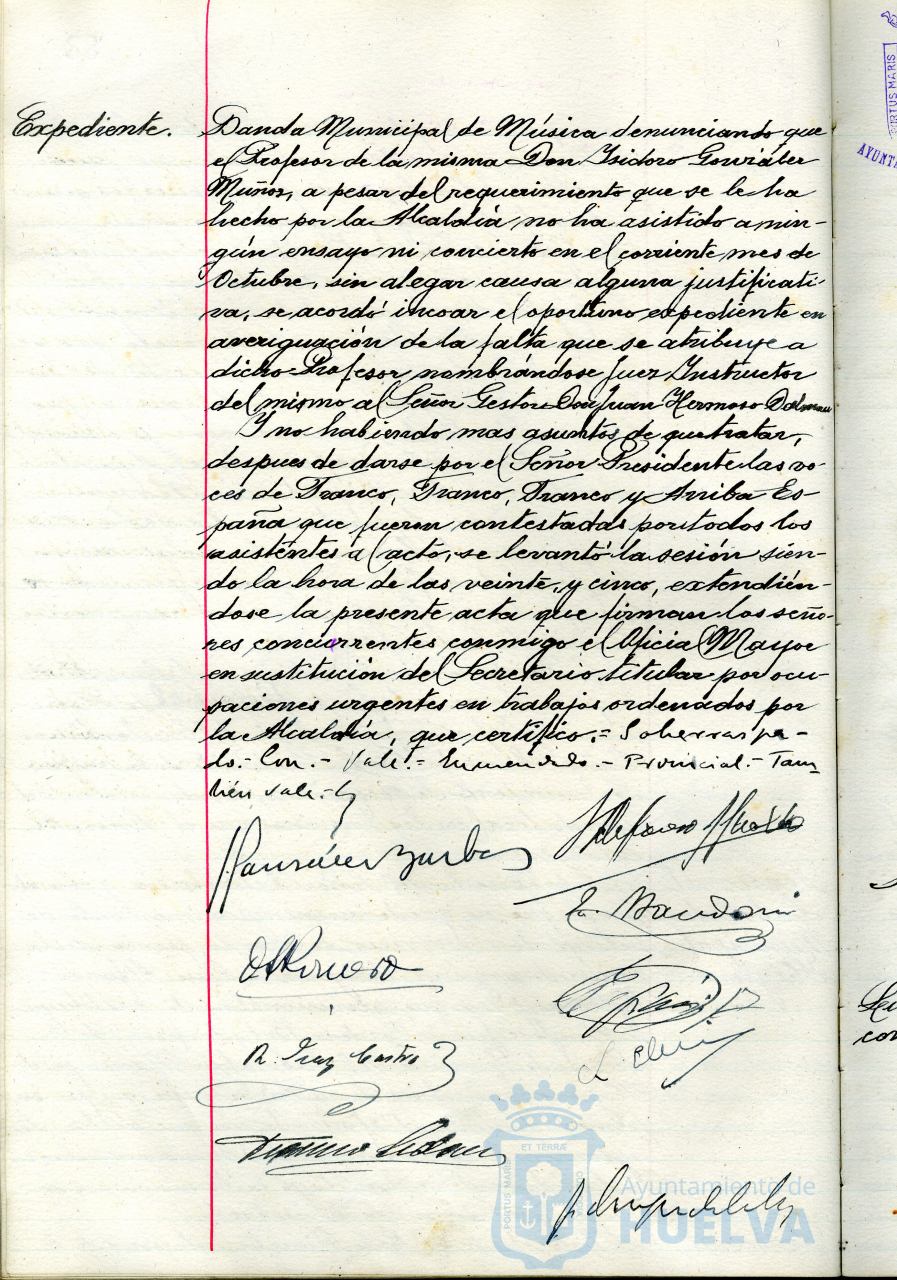 Expediente. Banda Municipal de Música denunciando que
el Profesor de la misma Don Isidoro González
Muñoz, a pesar del requerimiento que se le ha
hecho por la Alcaldía no ha asistido a nin-
gún ensayo ni concierto en el corriente mes de
Octubre, sin alegar causa alguna justificati-
va, se acordó incoar el oportuno expediente en
averiguación de la falta que se atribuye a
dicho Profesor nombrándose Juez Instructor
del mismo al Señor Gestor Don Juan Hermoso Dalmau
Y no habiendo mas asuntos de que tratar,
despues de darse por el Señor Presidente las vo-
ces de Franco, Franco, Franco y Arriba Es-
paña que fueron contestadas por todos los
asistentes al acto, se levantó la sesión sien-
do la hora de las veinte y cinco, extendién-
dose la presente acta que firman los seño-
res concurrentes conmigo el Oficial Mayor
en sustitución del Secretario titular por ocu-
paciones urgentes en trabajos ordenados por
la Alcaldía, que certifico.= Soberraspa-
do.- Con.- Vale.= Enmendado.- Provincial.- Tam-
bién vale.-
R. Díaz Castro
PORTUS MARIS
ET TERRÆ
Ayuntamiento de
HUELVA
PORTUS MARIS
AYUNT
con